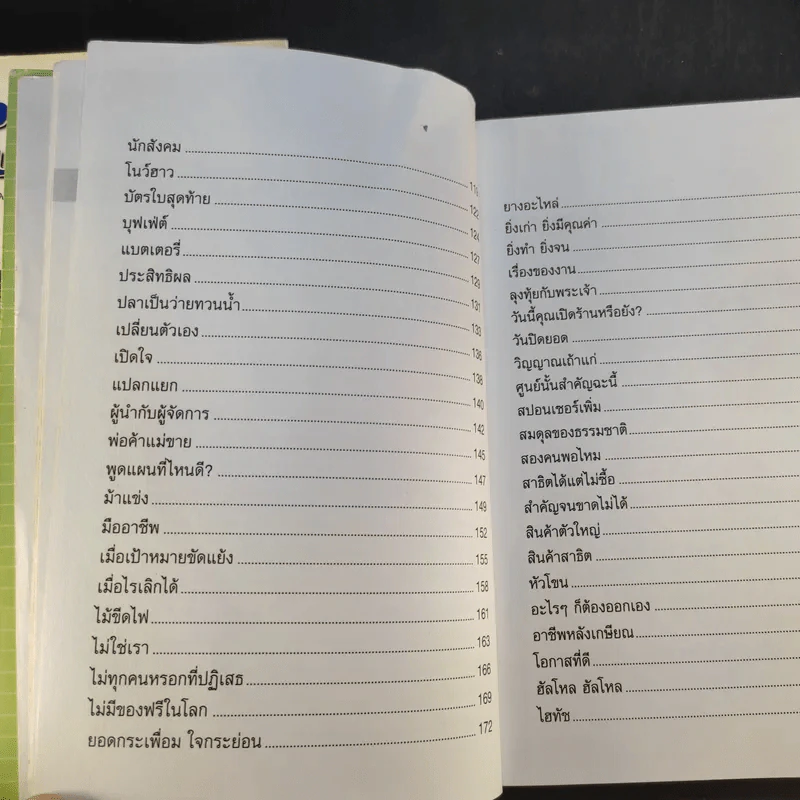 นักสังคม
โนว์ฮาว
บัตรใบสุดท้าย 122
บุฟเฟ่ต์ 124
แบตเตอรี่ 127
ประสิทธิผล 129
ปลาเป็นว่ายทวนน้ำ 131
เปลี่ยนตัวเอง 133
เปิดใจ 136
แปลกแยก 138
ผู้นำกับผู้จัดการ 140
พ่อค้าแม่ขาย 142
พูดแผนที่ไหนดี? 145
ม้าแข่ง 147
มืออาชีพ 149
เมื่อเป้าหมายขัดแย้ง 152
เมื่อไรเลิกได้ 155
ไม้ขีดไฟ 158
ไม่ใช่เรา 161
ไม่ทุกคนหรอกที่ปฏิเสธ 163
ไม่มีของฟรีในโลก 166
ยอดกระเพื่อม ใจกระย่อน 169
172
ยางอะไหล่
ยิ่งเก่า ยิ่งมีคุณค่า
ยิ่งทำ ยิ่งจน
เรื่องของงาน
ลุงทุ้ยกับพระเจ้า
วันนี้คุณเปิดร้านหรือยัง?
วันปิดยอด
วิญญาณเถ้าแก่
ศูนย์นั้นสำคัญฉะนี้
สปอนเซอร์เพิ่ม
สมดุลของธรรมชาติ
สองคนพอไหม
สาธิตได้แต่ไม่ซื้อ
สำคัญจนขาดไม่ได้
สินค้าตัวใหญ่
สินค้าสาธิต
หัวโขน
อะไรๆ ก็ต้องออกเอง
อาชีพหลังเกษียณ
โอกาสที่ดี
ฮัลโหล ฮัลโหล
ไฮทัช